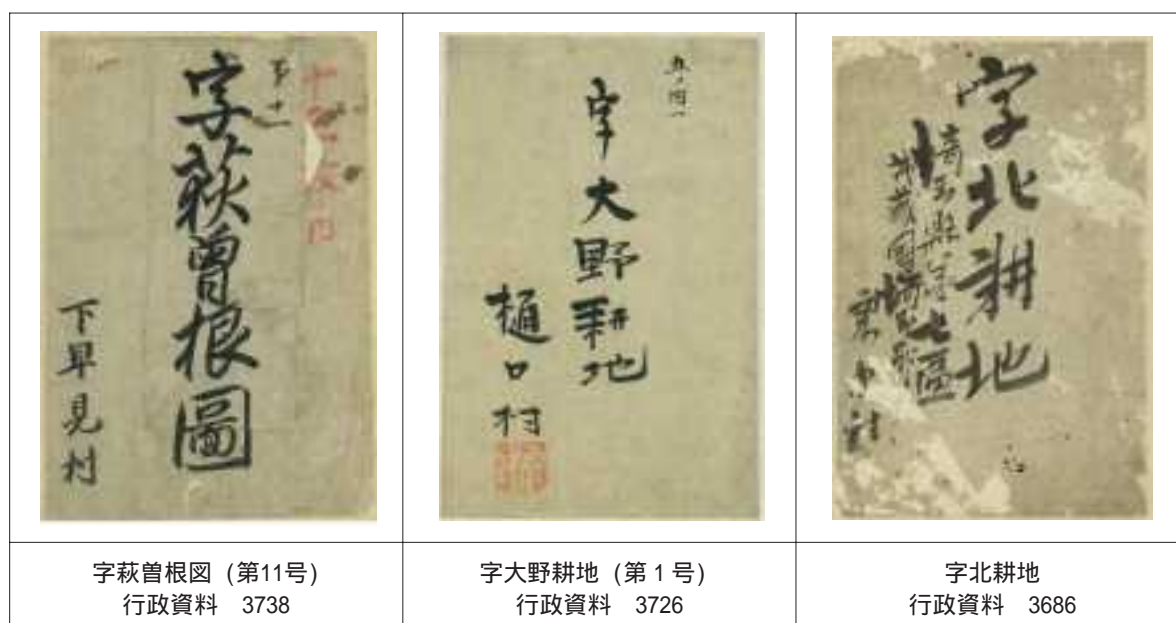 第十一
字萩曽根圖
下早見村
字大野耕地
樋口村
字北耕地
埼玉縣
武蔵國
字萩曽根図 (第11号)
行政資料　3738
字大野耕地 (第１号)
行政資料　3726
字北耕地
行政資料　3686